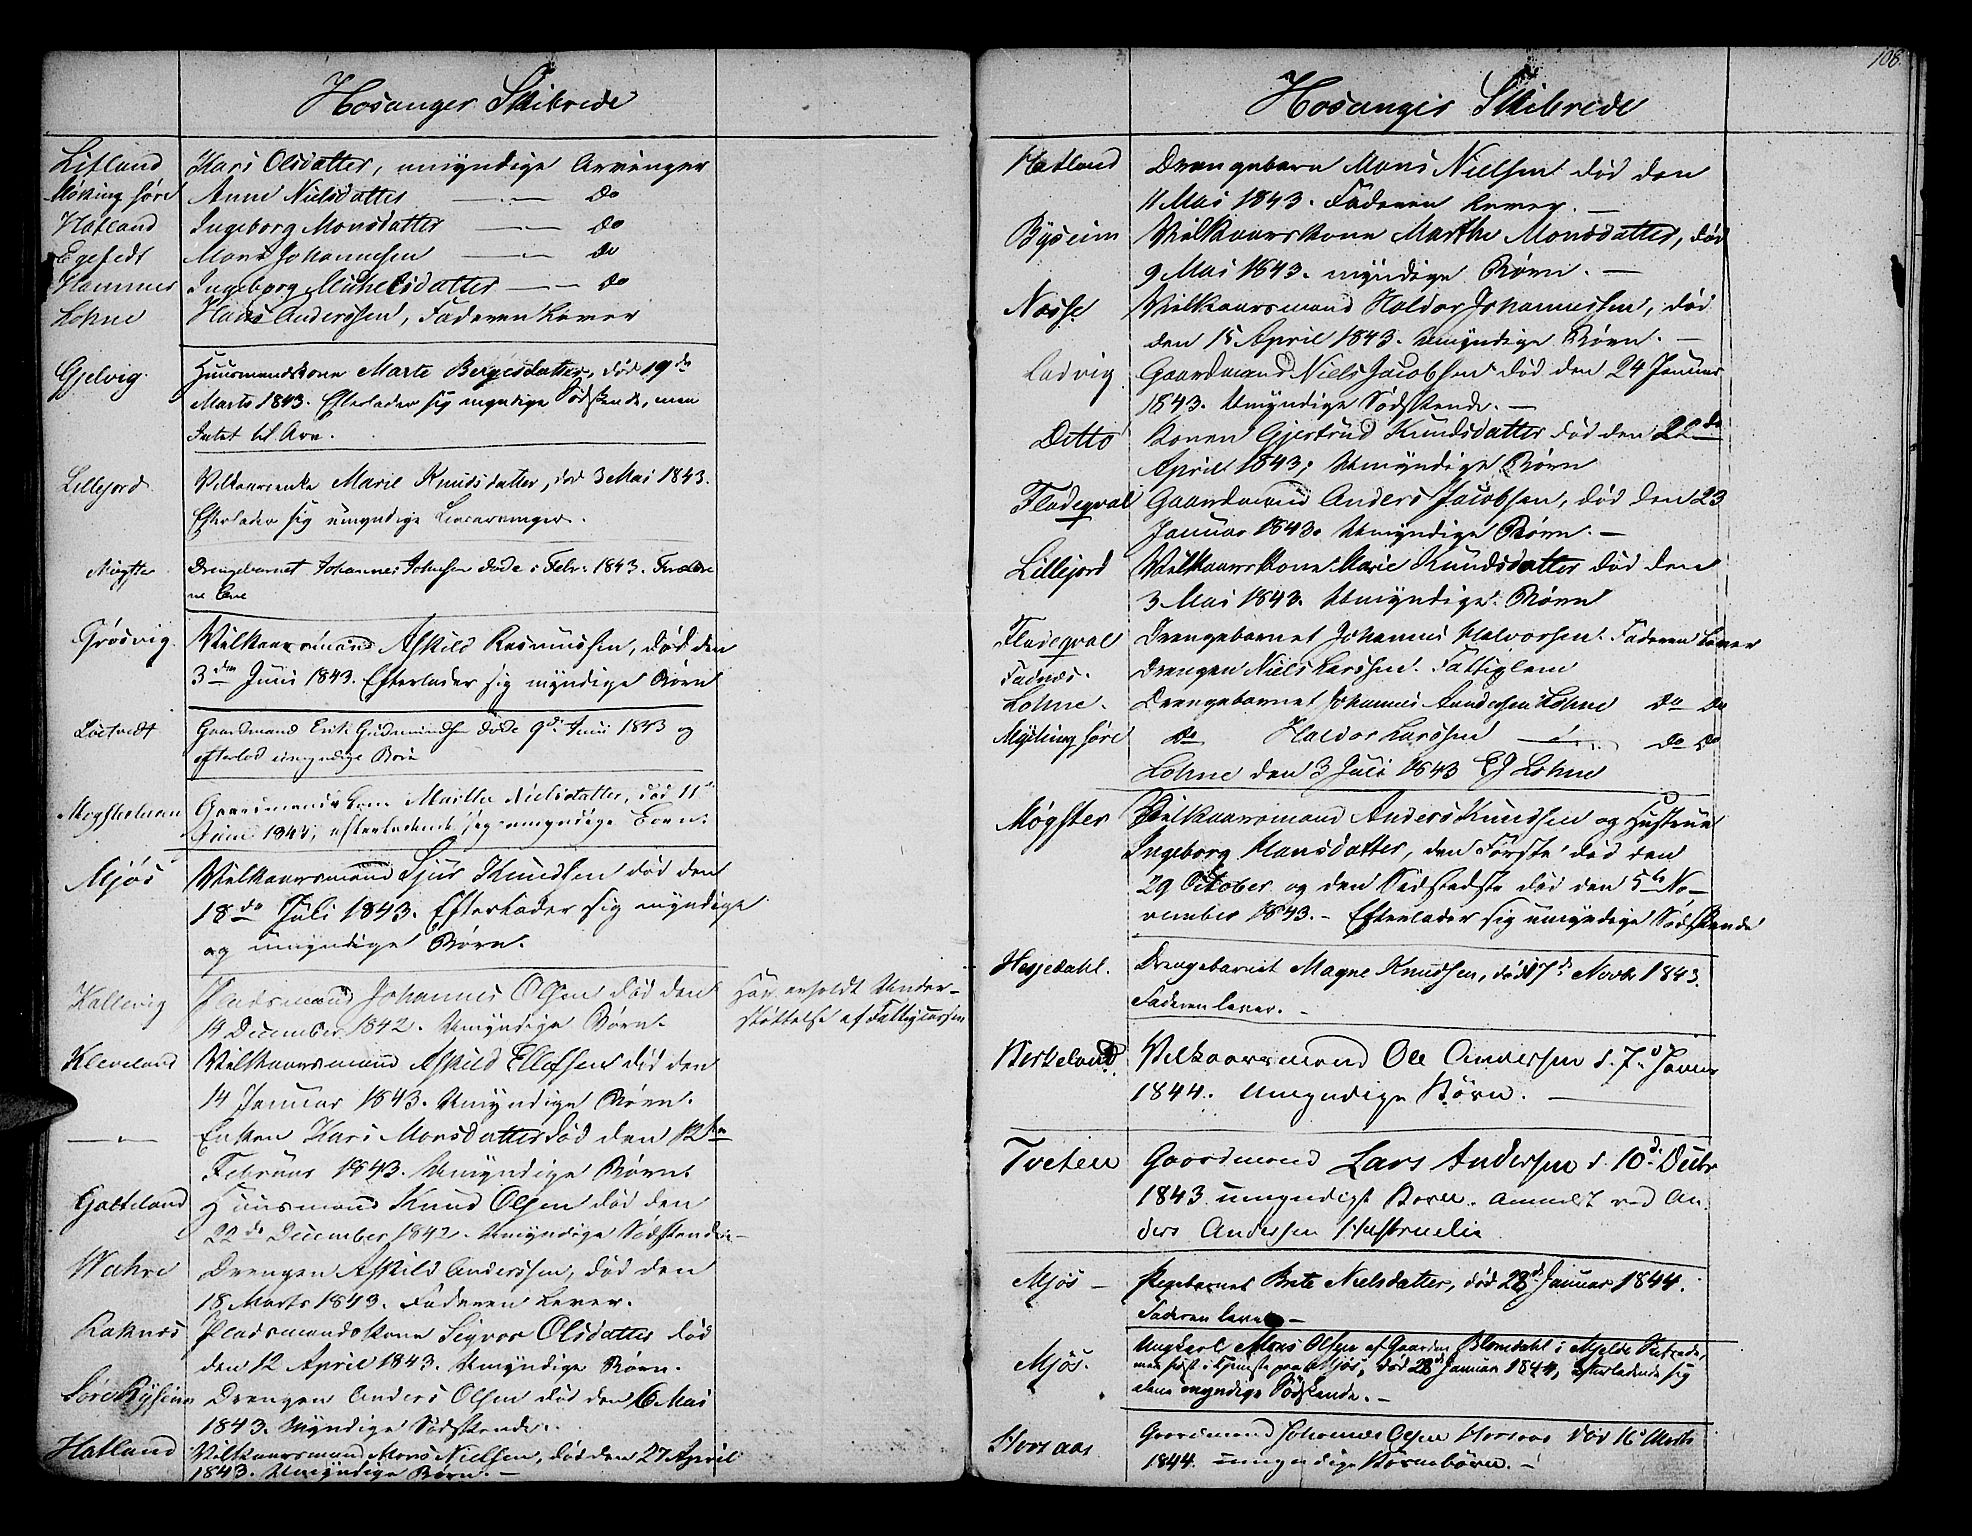 Hosanger Skibrede
Litland Kari Olsdatter, umyndige Arvinger
Møking søre Anne Nielsdatter —„— do
Hatland Ingeborg Monsdatter —„— do
Egetedt Mons Johannessen —„— do
Hammer Ingeborg Michelsdatter —„— do
Lohne Hans Anderssen, Faderen Lever
Gjelvig. Huusmandskone Marte Børgesdatter, død 19de
Marts 1843. Efterlader sig myndige Sødskende, men
Intet til Arv.
Lillejord Vilkaarenke Marie Knudsdatter, død 3 Mai 1843.
Efterlader sig umyndige Livsarvinger.
Møgster Drengebarnet Johannes Johnsen døde i Febr. 1843. Foreldre
ne leve
Grøsvig. Vilkaarsmand Askild Rasmussen, død den
3den Juni 1843. Efterlader sig myndige Børn
Løtvedt Gaardmand Erik Gudmundsen døde 9de Juni 1843 og
efterlod umyndige Børn
Møgstertman Gaardmands Kone Marthe Nielsdatter, død 11
Juni 1843, efterladende sig umyndige Børn.
Mjøs Vilkaarsmand Sjur Knudsen død den
18de Juli 1843. Efterlader sig myndige
og umyndige Børn.
Kallevig Pladsmand Johannes Olsen død den Har erholdt Under-
14 December 1842. Umyndige Børn. støttelse af Fattigcassen
Kleveland Vilkaarsmand Askild Ellefsen død den
14 Januar 1843. Umyndige Børn.
—„— Enken Kari Monsdatter død den 12te
Februar 1843. Umyndige Børn.
Galteland Huusmand Knud Olsen død den
22de December 1842. Umyndige Sødskende—
Wahre Drengen Askild Anderssen, død den
18 Marts 1843. Faderen Lever.
Raknes Pladsmandskone Sigvor Olsdatter død
den 12 April 1843. Umyndige Børn.
Søre Bysem Drengen Anders Olsen død den 6 Mai
1843. Myndige Sødskende.
Hatland Vilkaarsmand Mons Nielsen, død den 27 April
1843. Umyndige Børn. —
108.
Hosanger Skibrede
Hatland Drengebarn Mons Nielsen død den
11 Mai 1843. Faderen Lever. —
Byseim Vilkaarskone Marthe Monsdatter, død
9 Mai 1843. myndige Børn. —
Nosse Vilkaarsmand Haldor Johannessen, død
den 15 April 1843. Umyndige Børn. —
Ladvig Gaardmand Niels Jacobsen død den 24 Januar
1843. Umyndige Sødskende. —
Ditto Konen Gjertrud Knudsdatter død den 22de
April 1843; Umyndige Børn
Fladeqval Gaardmand Anders Jacobsen, død den 23
Januar 1843. Umyndige Børn. —
Lillejord Vilkaarskone Marie Knudsdatter død den
3 Mai 1843. Umyndige Børn
Fladeqval Drengebarnet Johannes Halvorsen. Faderen Lever
Fadnes. Drengen Niels Larssen. Fattiglem
Lohne. Drengebarnet Johannes Anderssen Lohne do do
Myking søre do Haldor Larssen —„— do do
Lohne den 3 Juli 1843 EJ Lohne
Møgster Vilkaarsmand Anders Knudsen og Hustrue
Ingeborg Hansdatter, den Første død den
29 October og den Sidstedste død den 5te No-
vember 1843. — Efterlader sig umyndige Sødskende
Hesjedahl. Drengebarnet Magne Knudsen, død 17de Novbr 1843.
Faderen lever. —
Berkeland. Vilkaarsmand Ole Andersen d. 7de Januar
1844. umyndige Børn. —
Tveten Gaardmand Lars Andersen d. 10de Decbr
1843. umyndige Børn. anmeldt ved An-
ders Andersen
Mjøs — Pigebarnet Brite Nielsdatter, død 28de Januar 1844.
Faderen lever —
Mjøs. Ungkarl Mons Olsen af Gaarden Blomdahl i Mjelde Skibrede,
men sidst i tjeneste paa Mjøs, død 28de Januar 1844, efterladende sig
alene myndige Sødskende. —
Horsaas Gaardmand Johannes Olsen Horsaas død 16de Marts
1844. umyndige Børnebørn. —